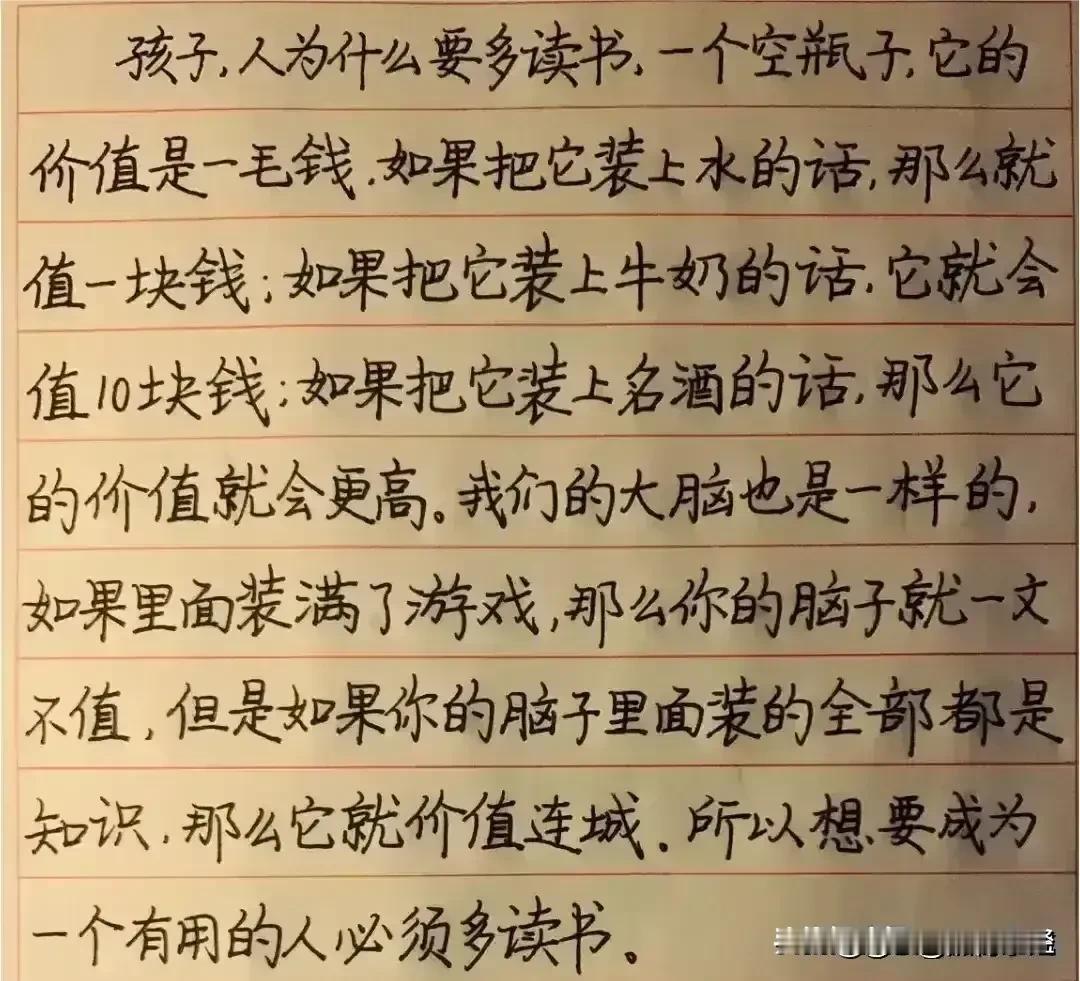 孩子,人为什么要多读书,一个空瓶子,它的
价值是一毛钱,如果把它装上水的话,那么就
值一块钱;如果把它装上牛奶的话,它就会
值10块钱;如果把它装上名酒的话,那么它
的价值就会更高。我们的大脑也是一样的,
如果里面装满了游戏,那么你的脑子就一文
不值,但是如果你的脑子里面装的全部都是
知识,那么它就价值连城.所以想要成为
一个有用的人必须多读书。